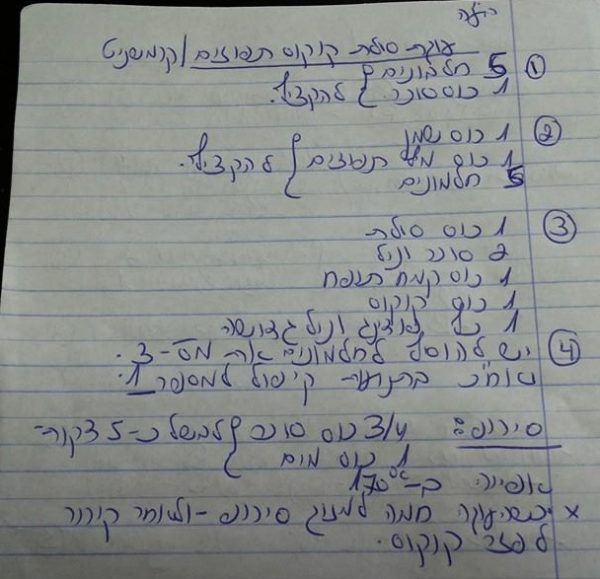 עוגת סולת קוקוס תפוזים / קרמשניט
① 5 חלבונים
1 כוס סוכר } להקציף.
② 1 כוס שמן
1 כוס מיץ תפוזים } להקציף.
5 חלמונים
③ 1 כוס סולת
2 סוכר וניל
1 כוס קמח תופח
1 כוס קוקוס
1 כף פודינג וניל גדושה
④ יש להוסיף לחלמונים את מס- 3.
ואח"כ בתנועת קיפול למספר 1.
סירופ: 3/4 כוס סוכר } לבשל כ-5 דקות
1 כוס מים
אפייה ב-170°c
x כשהעוגה חמה למזוג סירופ - ולאחר קירור
לפזר קוקוס.